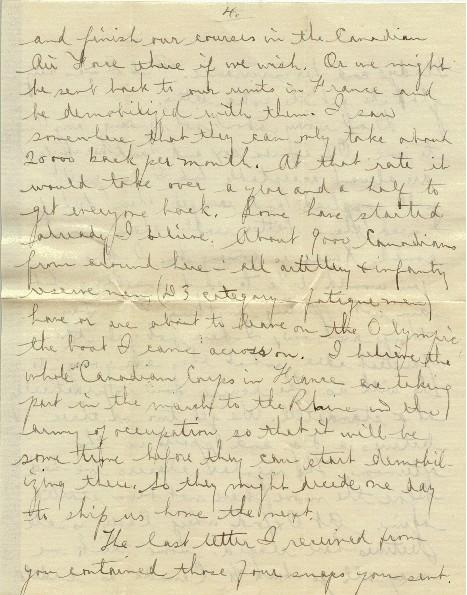 4.
and finish our courses in the Canadian
Air Force there if we wish. Or we might
be sent back to our units in France and
be demobilized with them. I saw
somewhere that they can only take about
20000 back per month. At that rate it
would take over a year and a half to
get everyone back. Some have started
already I believe. About 9000 Canadians
from around here - all artillery & infantry
reserve men (D3 category - fatigue men)
have or are about to leave on the Olympic
the boat I came across on. I believe the
whole Canadian Corps in France are taking
part in the march to the Rhine and the
army of occupation so that it will be
some time before they can start demobil-
izing them. So they might decide one day
to ship us home the next.
The last letter I received from
you contained those four snaps you sent.